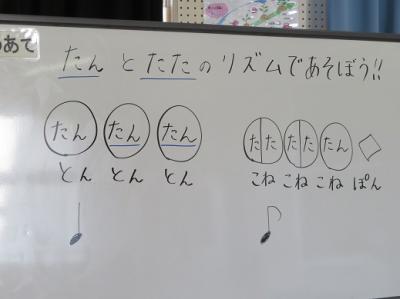 めあて
たん と たた の リズムであそぼう!!
たん たん たん
とん とん とん
たた たた たん
こね こね こね ぽん